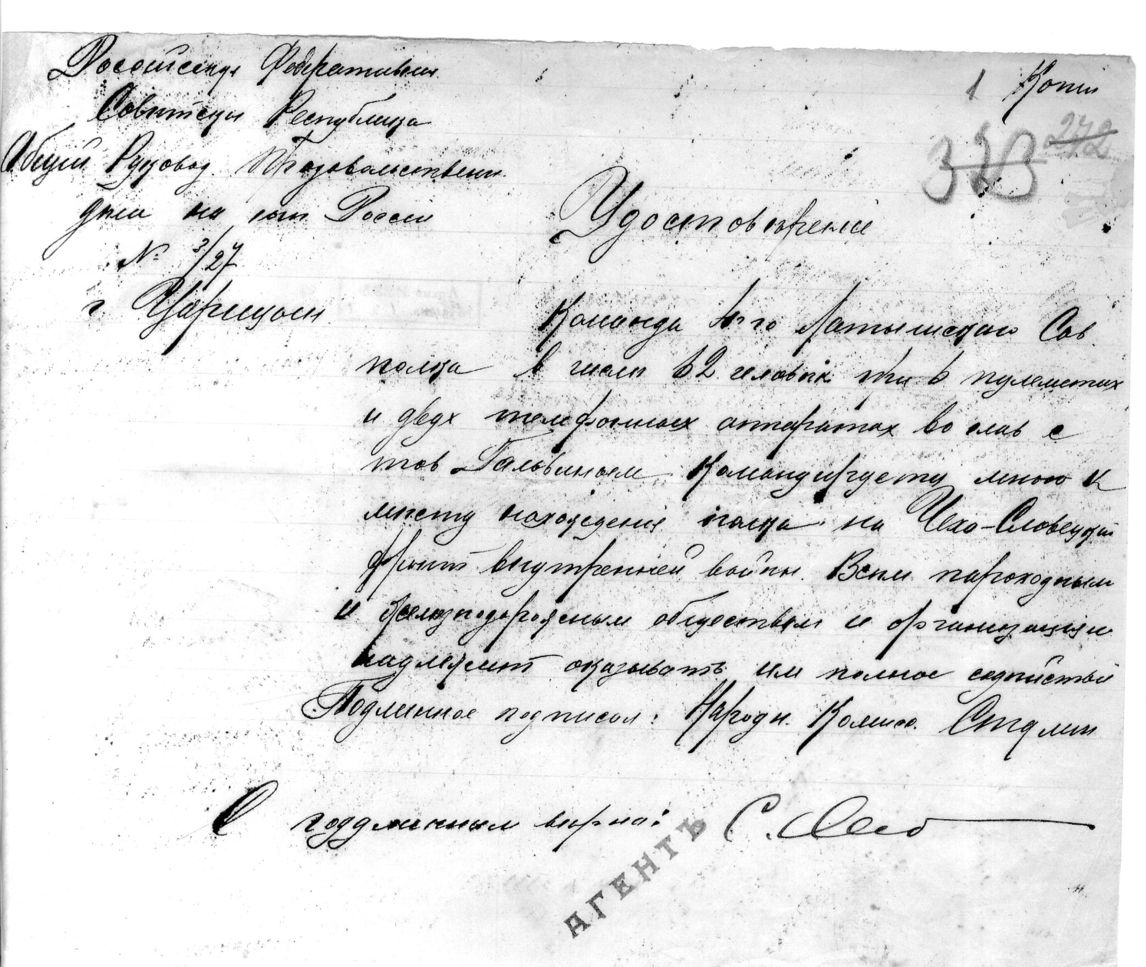 Российская Федеративная
1 Копия
Советская Республика
272
Общий Руковод. Продовольственн.
323
дела на юге России
Удостоверение
№ 3/27
г. Царицын
Команда 4го Латышскаго Сов.
полка в числе 62 человек при 6 пулеметах
и двух телефонных аппаратах во главе с
тов Гальвиным командируется мною к
месту нахождения полка на Чехо-Словацкий
фронт внутренней войны. Всем пароходным
и железнодорожным обществам и организациям
надлежит оказывать им полное содействие
Подлинное подписал: Народн. Комисс. Сталин
С подлинным верно: С.
АГЕНТЪ